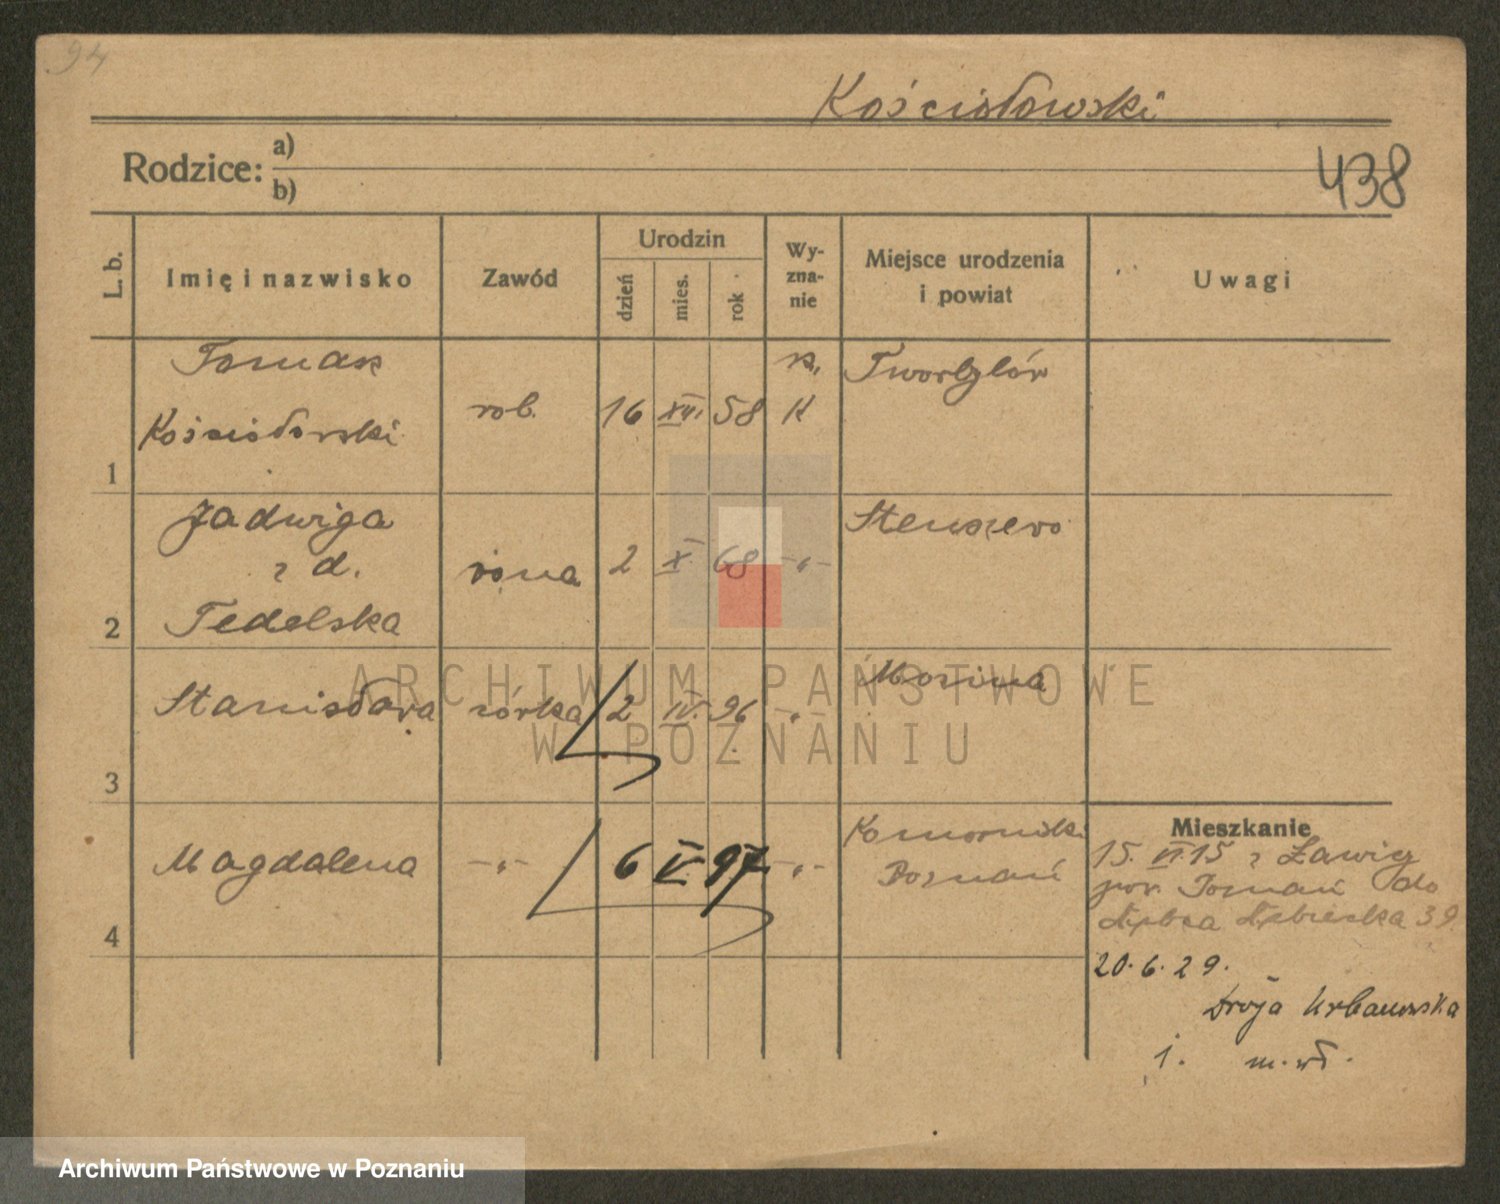 94
Kościołowski
Rodzice: a)
b)
438
L. b.
Imię i nazwisko
Zawód
Urodzin
dzień
mies.
rok
Wy-
zna-
nie
Miejsce urodzenia
i powiat
Uwagi
1
Tomasz
Kościołowski
rob.
16 XII. 58
K
2
Jadwiga
z d.
Tedelska
żona
2 X 68 -„-
Stenszewo
3
Stanisława
córka
2 IV. 96 -„-
4
Magdalena
-„-
6 V. 97 -„-
Komorniki
Poznań
Mieszkanie
15. VI. 15 z Ławicy
pow. Poznań do
39.
20. 6. 29.
Droga Urbanowska
1. m. wł.
ARCHIWUM PAŃSTWOWE
W POZNANIU
Archiwum Państwowe w Poznaniu